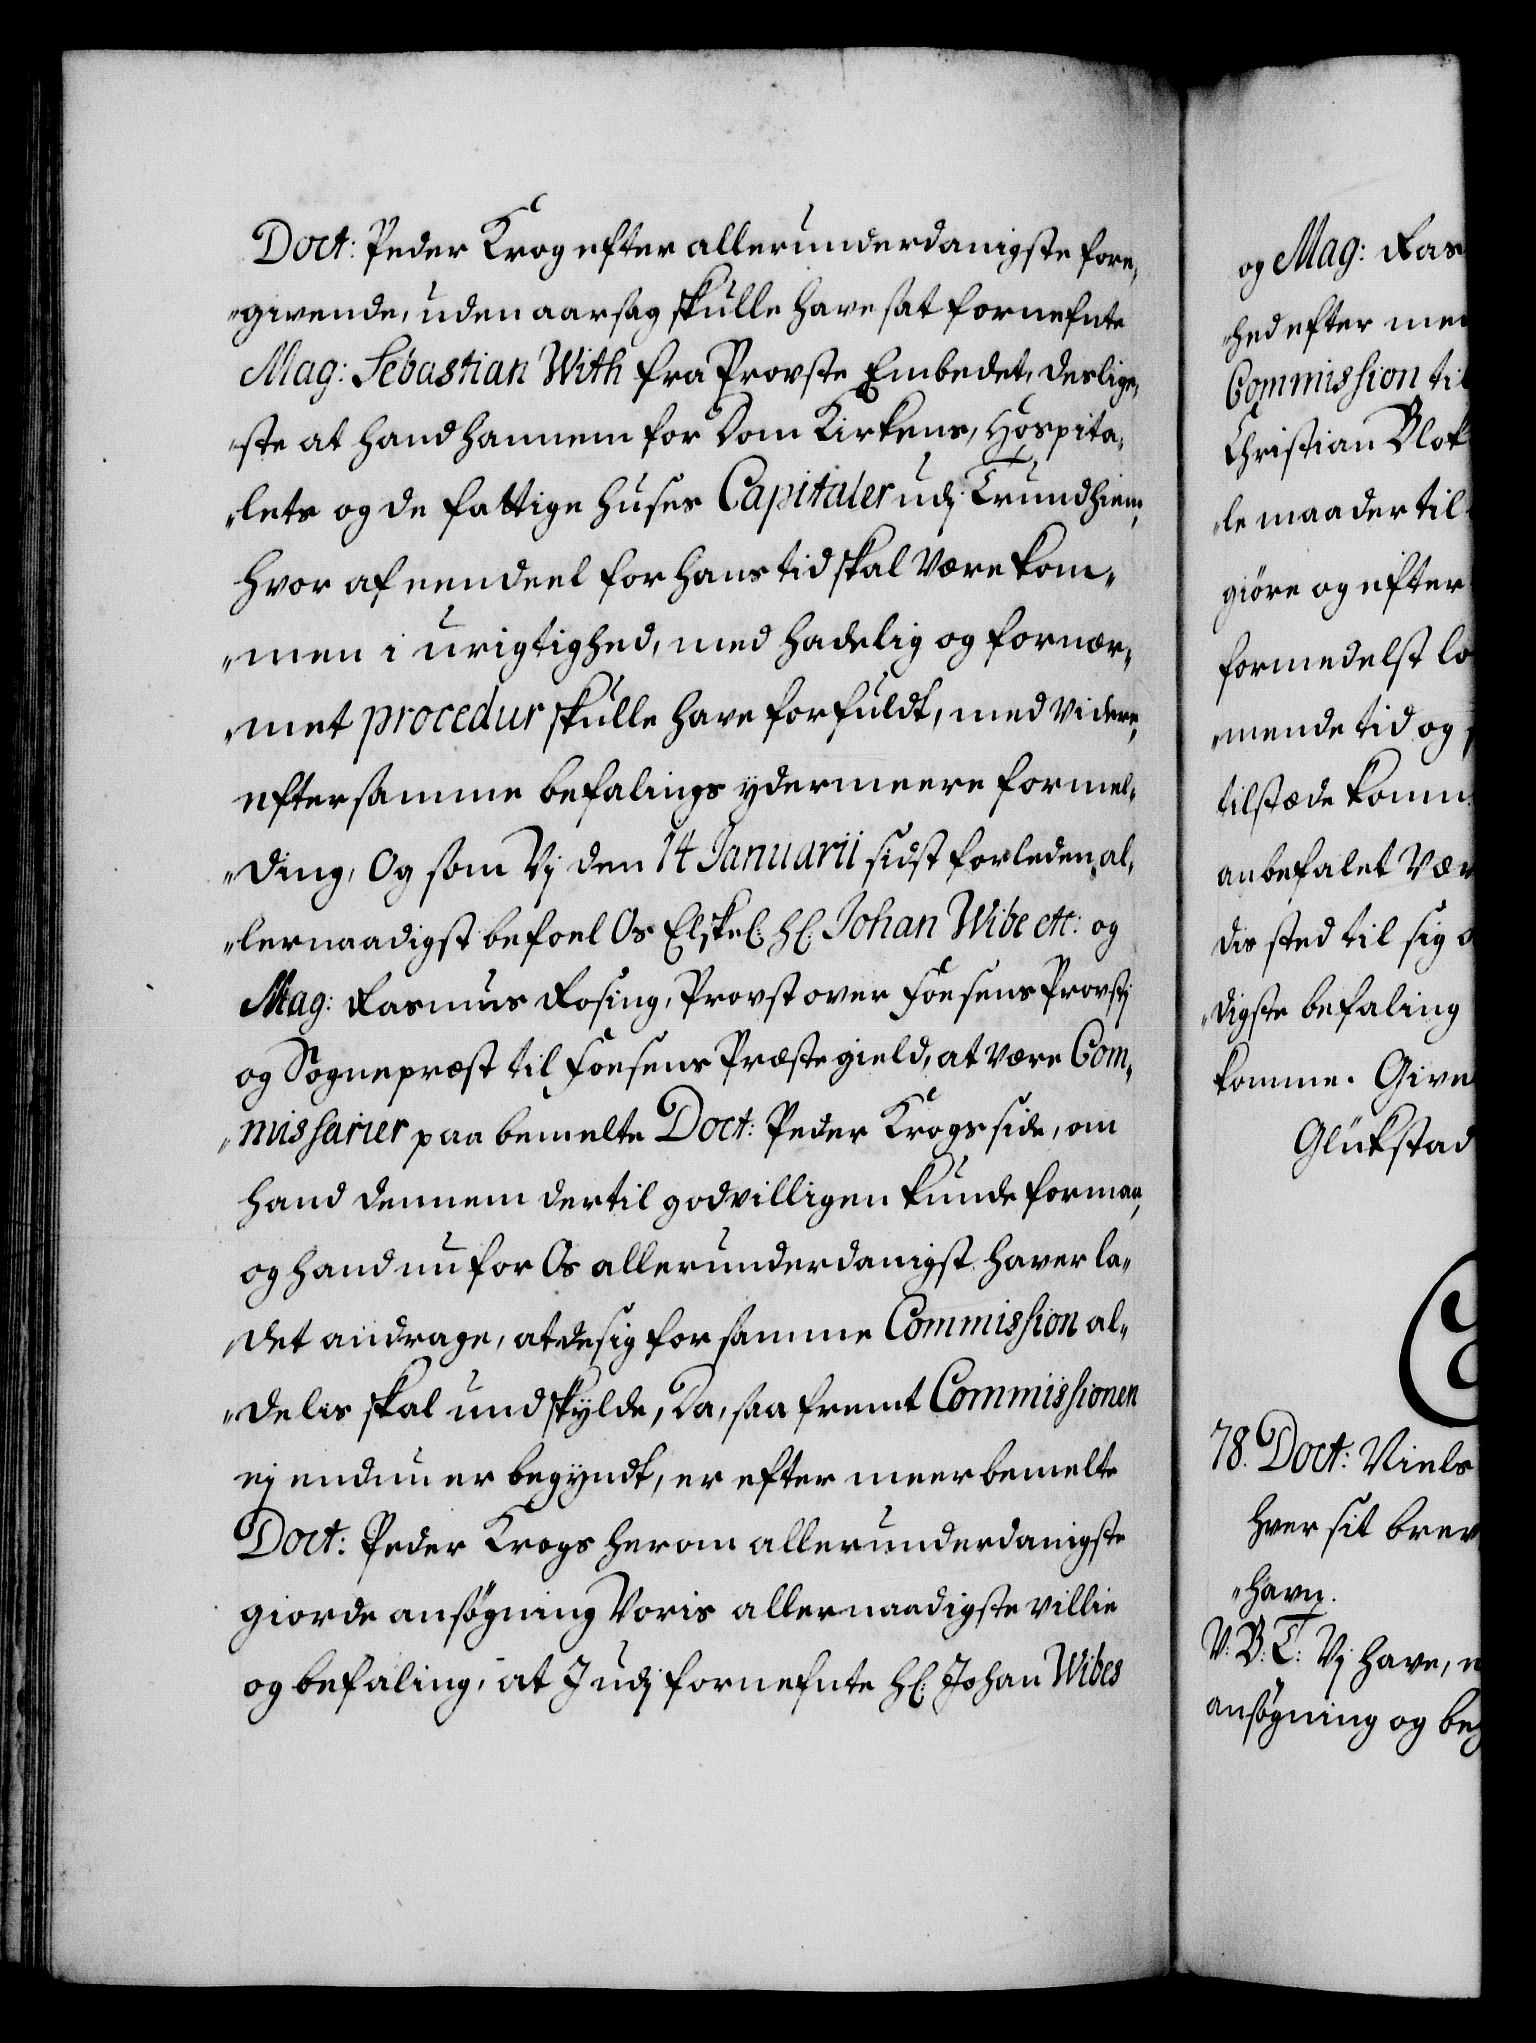 Doct: Peder Krog efter allerunderdanigste fore„
„givende, uden aarsag skulle have sat fornefnte
Mag: Sebastian With fra Provste Embedet, deslige„
„ste at hand hannem for Dom Kirkens, Hospita„
„lets og de fattige huses Capitaler udj Trundhiem,
hvor af eendeel for hans tid skal være kom„
„men i urigtighed, med hadelig og fornær„
„met procedur skulle have forfuldt, med videre,
efter samme befalings ydermeere formel„
„ding, Og som Vj den 14 Januarii sidst forleden al„
„lernaadigst befoel Os Elskel: Hl: Johan Wibe etc: og
Mag: Rasmus Rosing, Provst over Foesens Provstj
og Sognepræst til Foesens Præstegield, at være Com„
„missarier paa bemelte Doct: Peder Krogs side, om
hand dennem dertil godvilligen kunde formaa,
og hand nu for Os allerunderdanigst haver la„
„det andrage, at de sig for samme Commission al„
„delis skal undskylde, Da, saa fremt Commissionen
ej endnu er begyndt, er efter meerbemelte
Doct: Peder Krogs herom allerunderdanigste
giorde ansøgning Voris allernaadigste villie
og befaling, at I udj fornefnte Hl: Johan Wibes
og Mag: Ras
„hed efter me
Commission til
Christian Blok
„le maader til
giøre og efter
formedelst lo
„mende tid og
tilstæde komm
anbefalet Vær
dis sted til sig
„digste befaling
komme. Give
Glükstad
78. Doct: Niels
hver sit brev
„havn.
V: B: T: Vj have,
ansøgning og beg